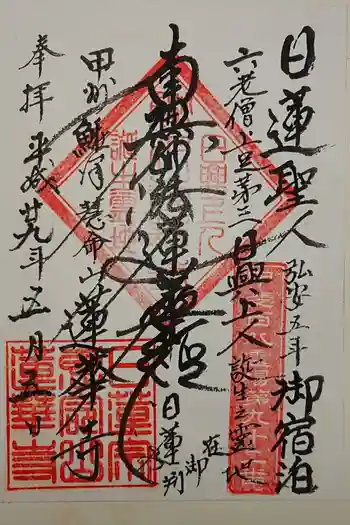 日蓮聖人 弘安五年 御宿泊
六老僧上足第三 日興上人 誕生之霊地
南無妙法蓮華経
日蓮 在御判
甲州 鰍沢 慧命山 蓮華寺
奉拝 平成廿九年五月五日
日興上人
誕生霊地